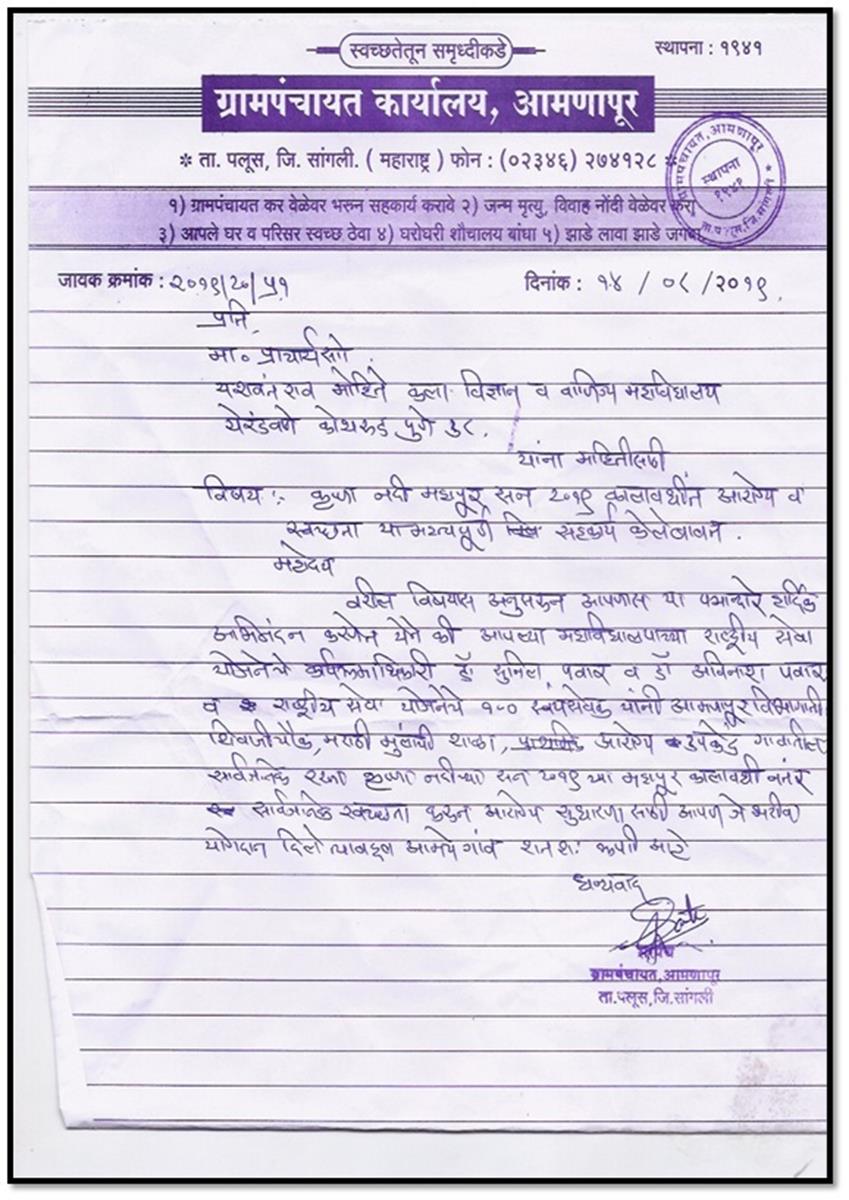 स्वच्छतेतून समृध्दीकडे
स्थापना : १९४१
ग्रामपंचायत कार्यालय, आमणापूर
* ता. पलूस, जि. सांगली. ( महाराष्ट्र ) फोन : (०२३४६) २७४१२८ *
ग्रामपंचायत, आमणापूर
स्थापना
१९४१
१) ग्रामपंचायत कर वेळेवर भरुन सहकार्य करावे २) जन्म मृत्यु, विवाह नोंदी वेळेवर करा
३) आपले घर व परिसर स्वच्छ ठेवा ४) घरोघरी शौचालय बांधा ५) झाडे लावा झाडे जगवा
जावक क्रमांक : २०१९/२०/५१
दिनांक : १४ / ०८ / २०१९.
प्रति,
मा. प्राचार्यसो
यशवंतराव मोहिते कला विज्ञान व वाणिज्य महाविद्यालय
येरंडवणे कोथरुड पुणे ३८.
यांना माहितीसाठी
विषय :- कृष्णा नदी महापूर सन २०१९ कालावधीत आरोग्य व
स्वच्छता या महत्वपूर्ण सहकार्य केलेबाबत.
महोदय
वरील विषयास अनुसरुन आपणास या पत्राव्दारे हार्दिक
अभिनंदन करणेत येते की आपल्या महाविद्यालयाच्या राष्ट्रीय सेवा
योजनेचे कार्यक्रमाधिकारी डॉ सुनिल पवार व डॉ अविनाश पवार
व राष्ट्रीय सेवा योजनेचे १८० स्वयंसेवक यांनी आमणापूर विभागाती
शिवाजी चौक, मराठी मुलांची शाळा, प्राथमिक आरोग्य उपकेंद्र गावातील
सार्वजनिक रस्ता कृष्णा नदीच्या सन २०१९ च्या महापूर कालावधी नंतर
सार्वजनिक स्वच्छता करुन आरोग्य सुधारणा साठी आपण जे भरीव
योगदान दिले त्याबद्दल आमचे गांव शतशः ऋणी आहे
धन्यवाद
सरपंच
ग्रामपंचायत,आमणापूर
ता.पलूस,जि.सांगली